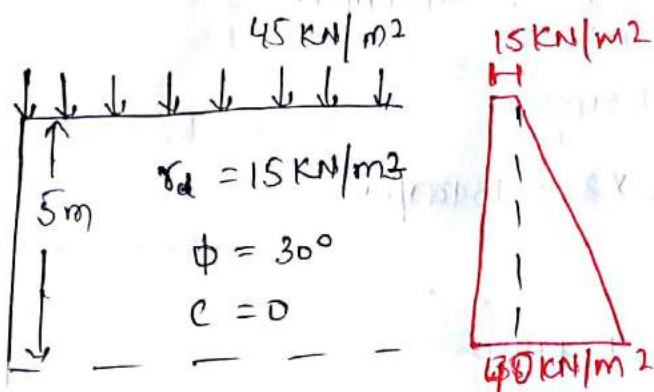 45 KN/m2
15KN/m2
5m
γd = 15 KN/m3
ϕ = 30°
C = 0
KN/m2